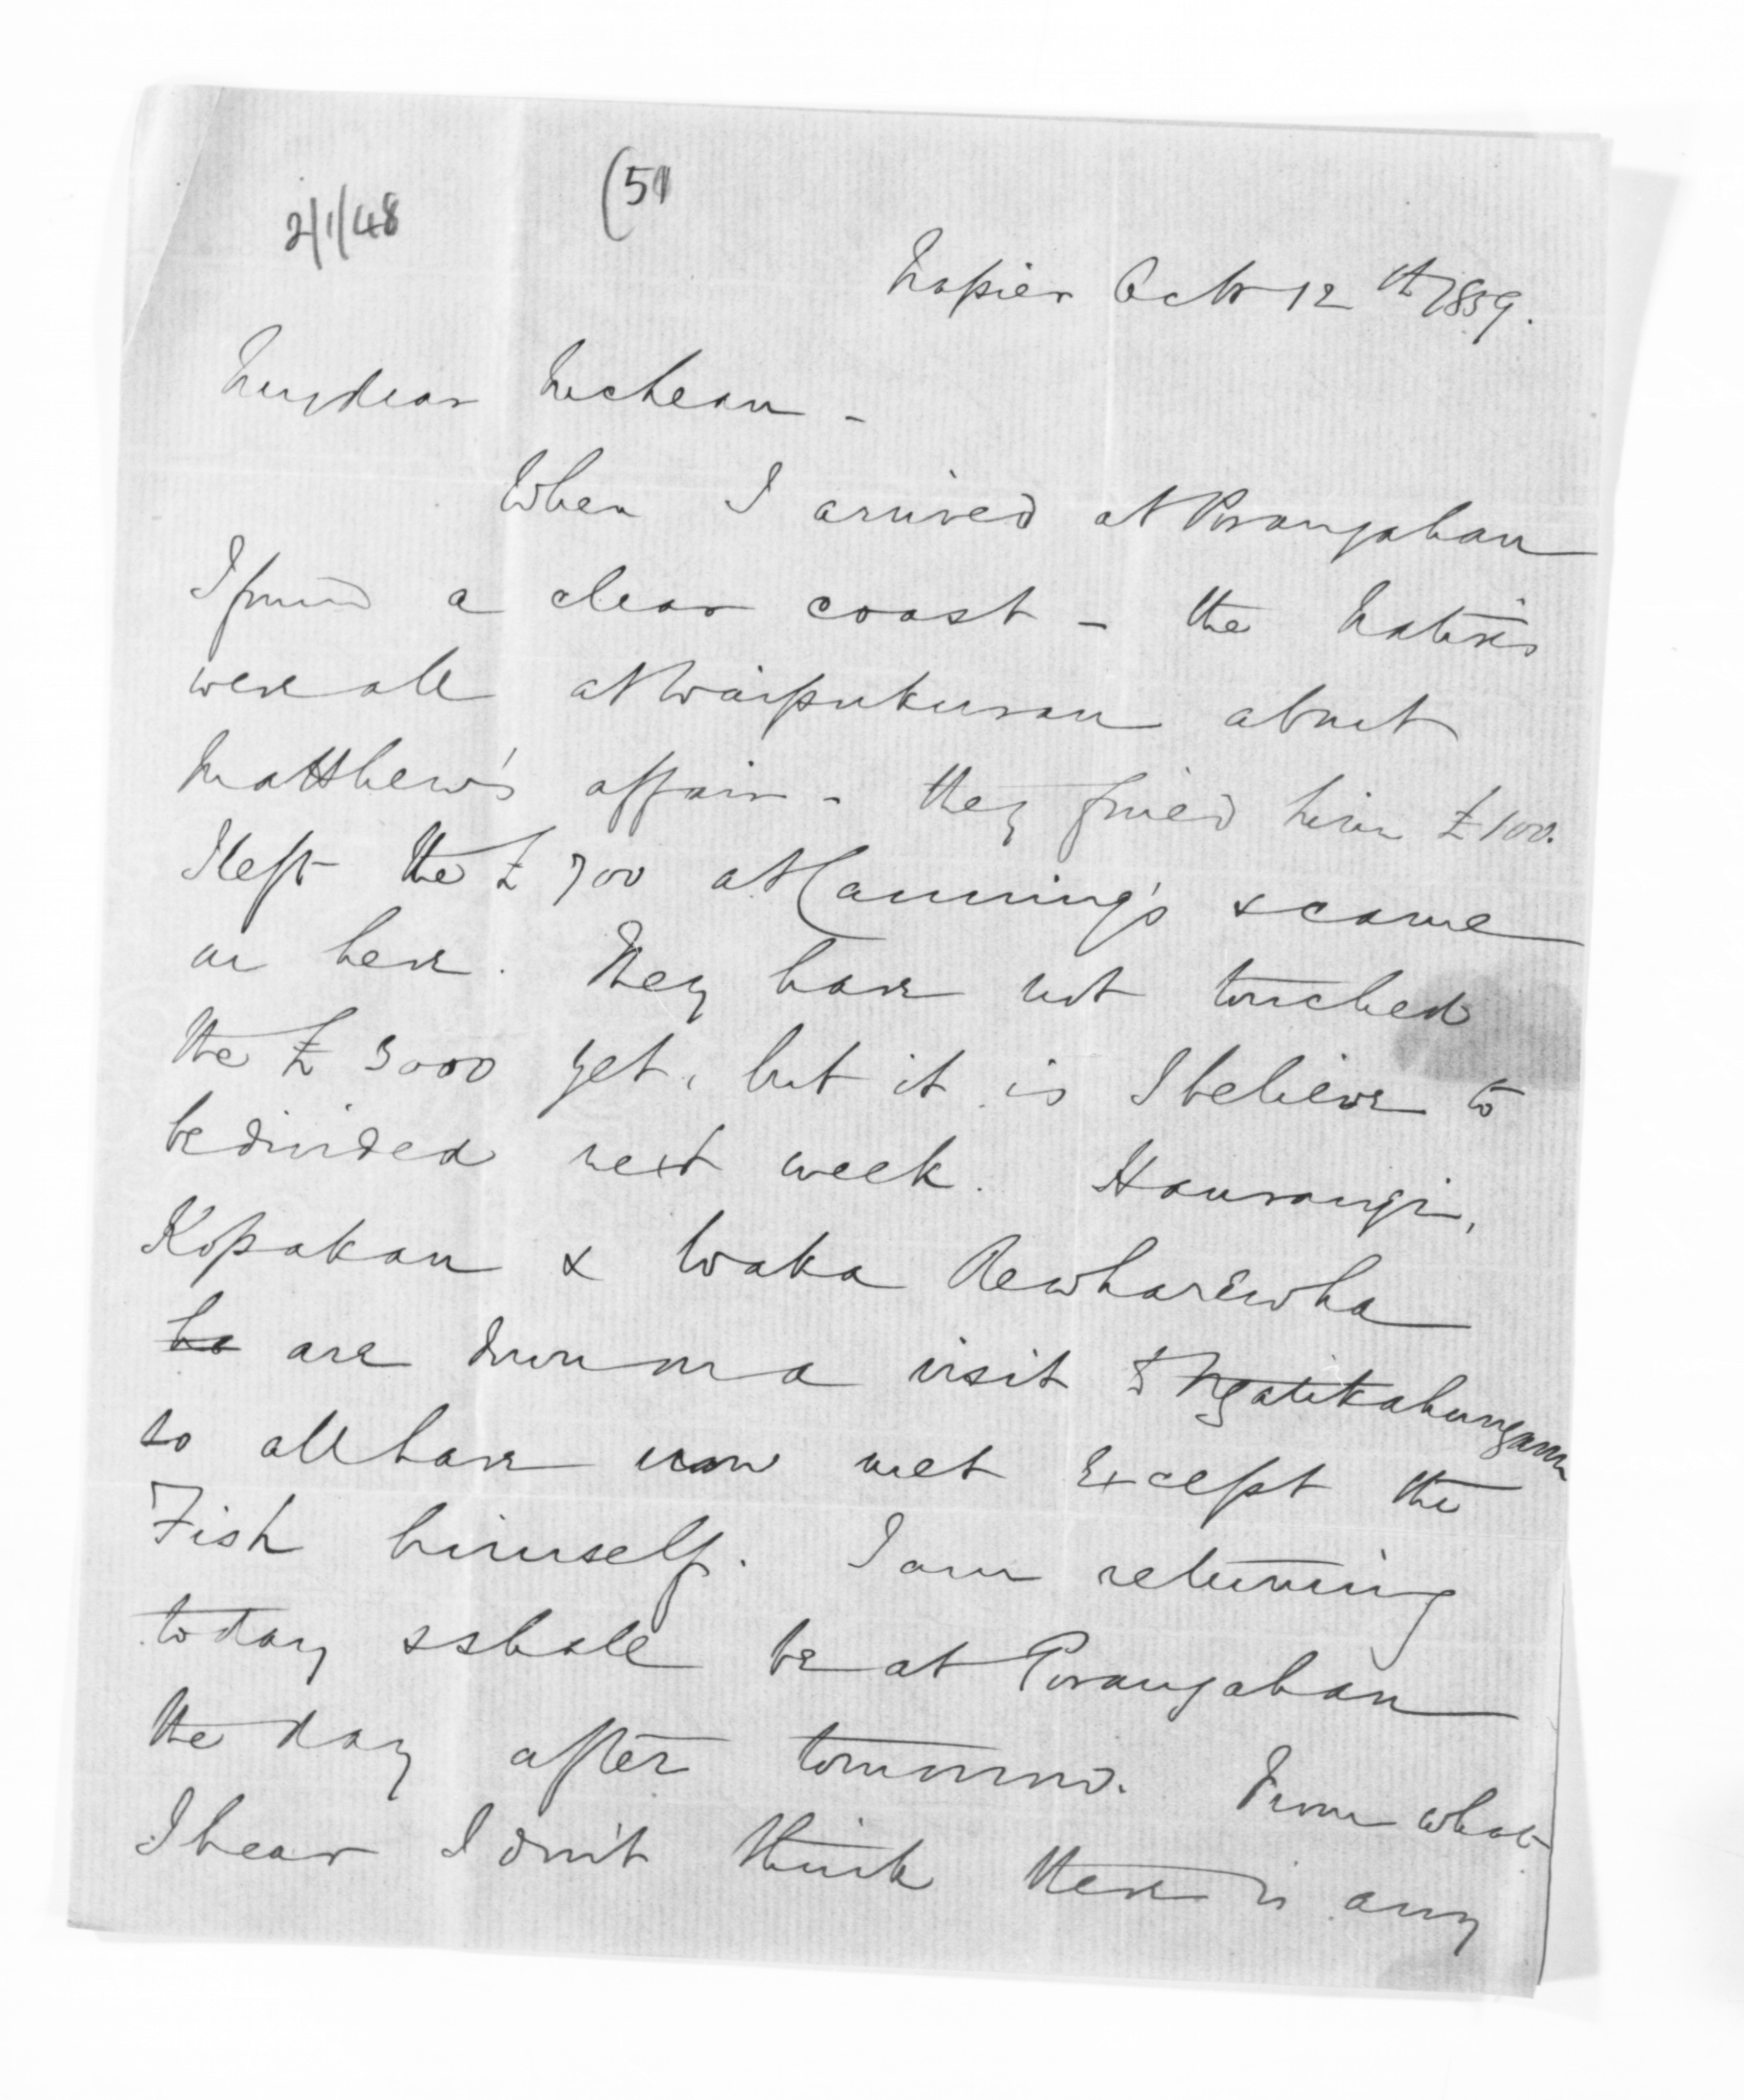 2/1/48
(51
Napier Octr 12th 1859.
My dear McLean -
When I arrived at Porangahau
I found a clear coast - the Natives
were all at Waipukurau about
Matthew's affair - they fined him £100.
I left the £700 at Canning's & came
on here. They have not touched
the £3000 yet, but it is I believe to
be divided next week. Haurangi,
Kopakau & Waka Rewharewha
ha are down on a visit to Ngatikahungunu
so all have now met except the
Fish himself. I am returning
today & shall be at Porangahau
the day after tomorrow. From what
I hear I don't think there is any